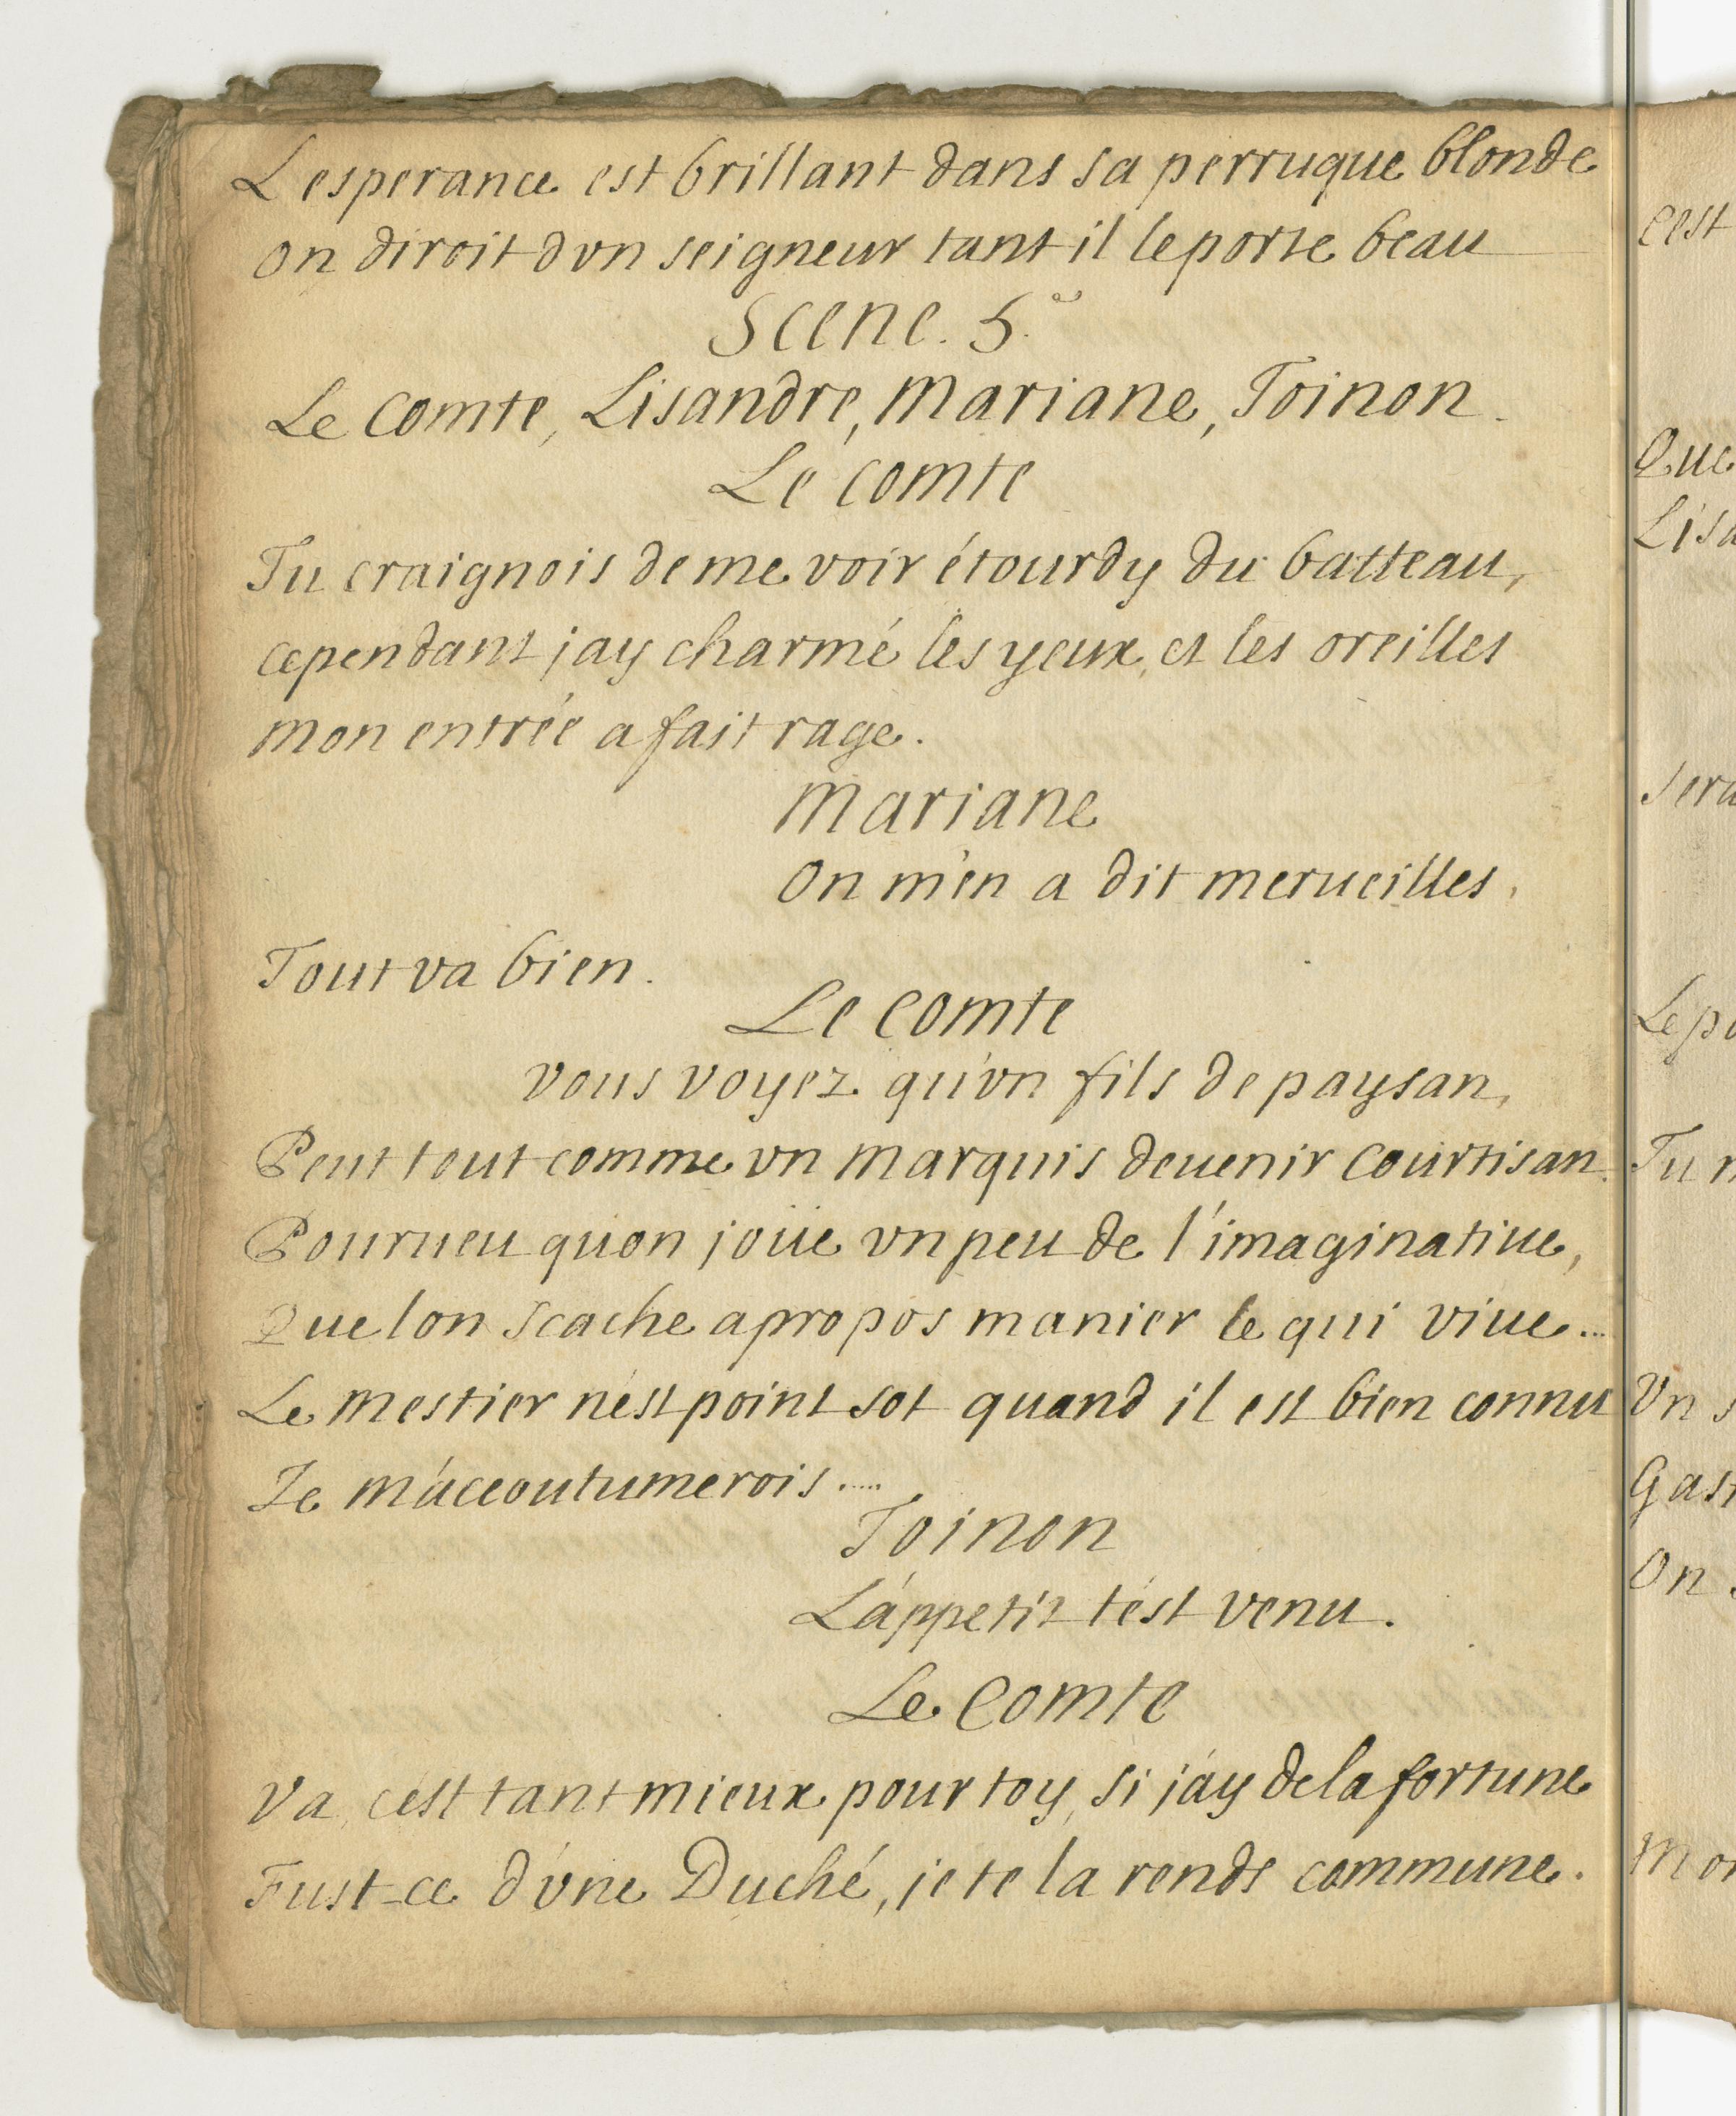 Lesperance est brillant dans sa perruque blonde
on diroit dvn seigneur tant il le porte beau
Scene. 5.e
Le Comte, Lisandre, Mariane, Toinon.
Le comte
Tu craignois de me voir étourdy du batteau,
cependant jay charmé les yeux, et les oreilles
mon entrée a fait rage.
Mariane
On m'en a dit merueilles,
Tout va bien.
Le comte
vous voyez qu'vn fils de paysan,
Peut tout comme vn marquis deuenir courtisan.
Pourueu quon joüe vn peu de l'imaginatiue,
Que lon scache apropos manier le qui viue...
Le mestier n'est point sot quand il est bien connu
Je m'accoutumerois.....
Toinon
L'appetit t'est venu.
Le comte
Va, c'est tant mieux pour toy, si j'ay de la fortune
Fust-ce d'vne Duché, je te la rends commune.
cest
Que
Lisa
sera
Le po
Tu
Vn s
Gas
On
Mon